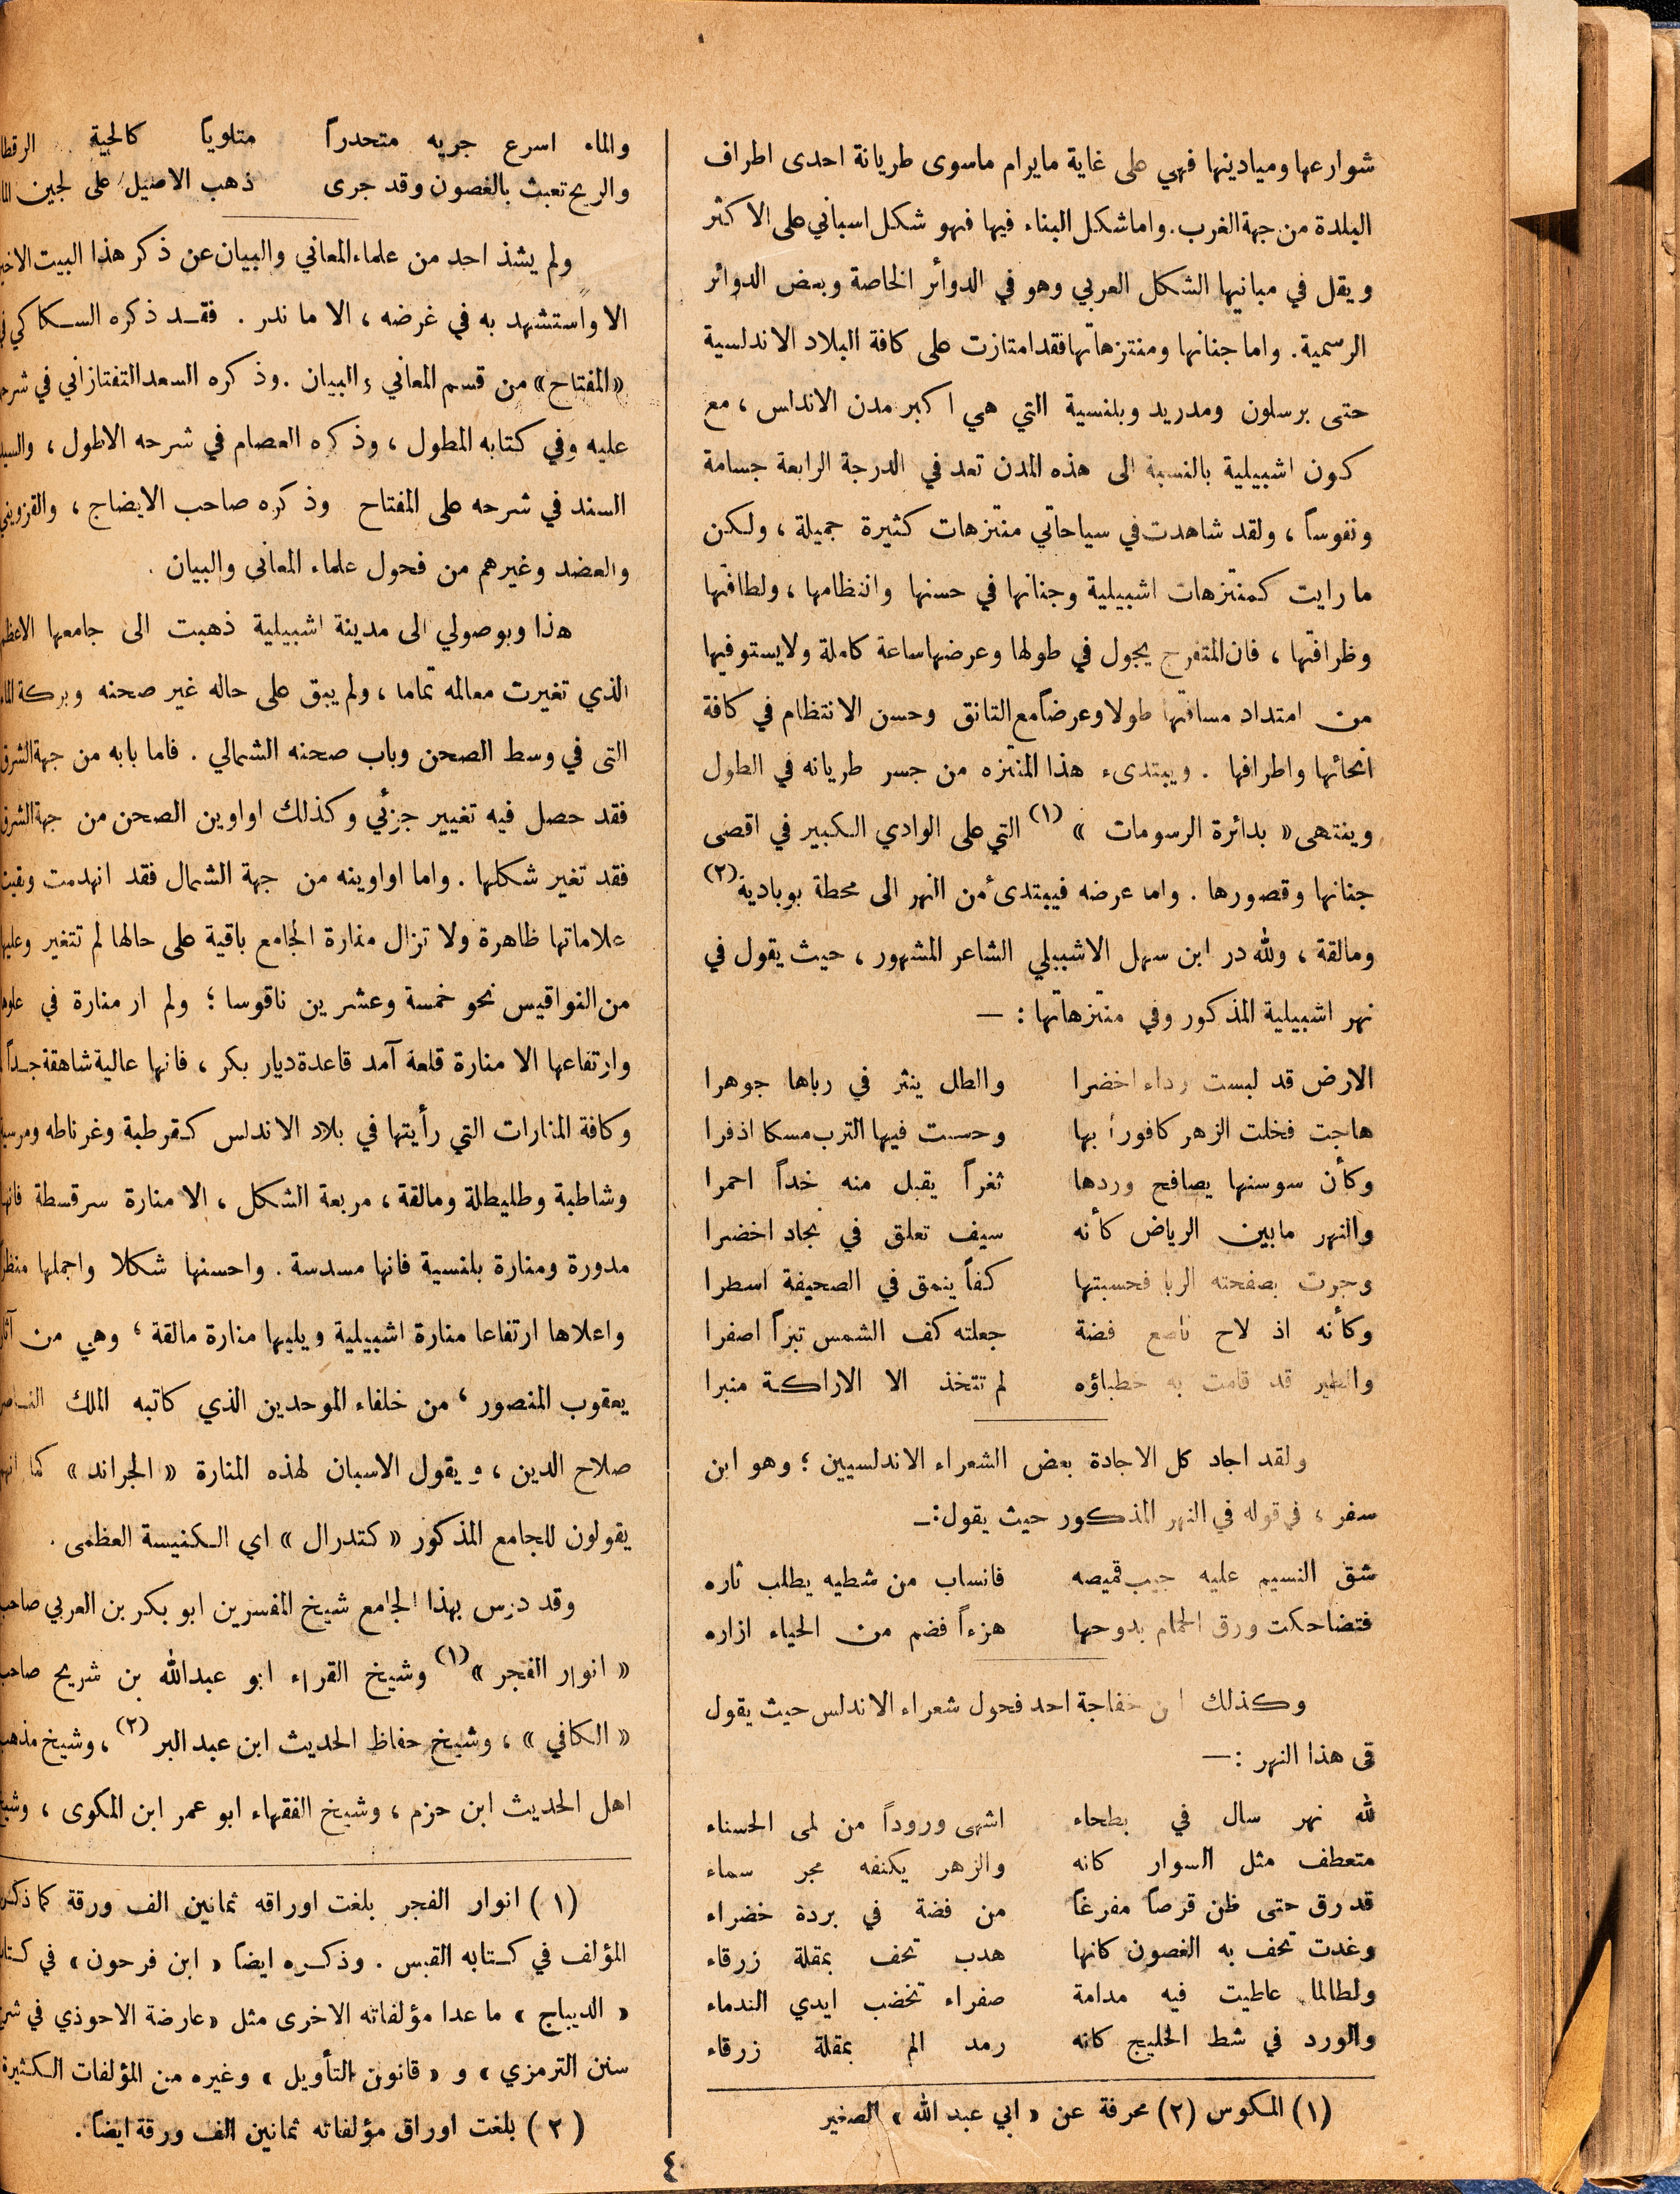 شوارعها وميادينها فهي على غاية مايرام ماسوى طريانة احدى اطراف
البلدة من جهة الغرب. واما شكل البناء فيها فهو شكل اسباني على الاكثر
ويقل في مبانيها الشكل العربي وهو في الدوائر الخاصة وبعض الدوائر
الرسمية. واما جنانها ومنتزهاتها فقد امتازت على كافة البلاد الاندلسية
حتى برسلون ومدريد وبلنسية التي هي اكبر مدن الاندلس ، مع
كون اشبيلية بالنسبة الى هذه المدن تعد في الدرجة الرابعة جسامة
ونفوساً ، ولقد شاهدت في سياحاتي منتزهات كثيرة جميلة ، ولكن
ما رايت كمنتزهات اشبيلية وجنانها في حسنها وانتظامها ، ولطافتها
وظرافتها ، فان المتفرج يجول في طولها وعرضها ساعة كاملة ولايستوفيها
من امتداد مسافتها طولا وعرضاً مع التانق وحسن الانتظام في كافة
انحائها واطرافها . ويبتدىء هذا المنتزه من جسر طريانه في الطول
وينتهى « بدائرة الرسومات » (١) التي على الوادي الكبير في اقصى
جنانها وقصورها . واما عرضه فيبتدىء من النهر الى محطة بوبادية (٢)
ومالقة ، ولله در ابن سهل الاشبيلي الشاعر المشهور ، حيث يقول في
نهر اشبيلية المذكور وفي منتزهاتها : —
الارض قد لبست رداء اخضرا والطل ينثر في رباها جوهرا
هاجت فخلت الزهر كافوراً بها وحسبت فيها الترب مسكا اذفرا
وكأن سوسنها يصافح وردها ثغراً يقبل منه خداً احمرا
والنهر مابين الرياض كأنه سيف تعلق في نجاد اخضرا
وجرت بصفحته الربا فحسبتها كفاً ينمق في الصحيفة اسطرا
وكأنه اذ لاح ناصع فضة جعلته كف الشمس تبراً اصفرا
والطير قد قامت به خطباؤه لم تتخذ الا الاراكة منبرا
ولقد اجاد كل الاجادة بعض الشعراء الاندلسيين ؛ وهو ابن
سفر ، في قوله في النهر المذكور حيث يقول :—
شق النسيم عليه جيب قميصه فانساب من شطيه يطلب ثاره
فتضاحكت ورق الحمام بدوحها هزءاً فضم من الحياء ازاره
وكذلك ابن خفاجة احد فحول شعراء الاندلس حيث يقول
في هذا النهر : —
لله نهر سال في بطحاء اشهى وروداً من لمى الحسناء
متعطف مثل السوار كانه والزهر يكنفه مجر سماء
قد رق حتى ظن قرصاً مفرغاً من فضة في بردة خضراء
وغدت تحف به الغصون كانها هدب تحف بمقلة زرقاء
ولطالما عاطيت فيه مدامة صفراء تخضب ايدي الندماء
والورد في شط الخليج كانه رمد الم بمقلة زرقاء
(١) المكوس (٢) محرفة عن « ابي عبد الله » الصغير
والماء اسرع جريه متحدراً متلوياً كالحية الرقطا
والريح تعبث بالغصون وقد جرى ذهب الاصيل على لجين
ولم يشذ احد من علماء المعاني والبيان عن ذكر هذا البيت
الا واستشهد به في غرضه ، الا ما ندر . فقد ذكره السكاكي
« المفتاح » من قسم المعاني والبيان . وذكره السعد التفتازاني في
عليه وفي كتابه المطول ، وذكره العصام في شرحه الاطول ،
السند في شرحه على المفتاح وذكره صاحب الايضاح ، والقزويني
والعضد وغيرهم من فحول علماء المعاني والبيان .
هذا وبوصولي الى مدينة اشبيلية ذهبت الى جامعها الاعظم
الذي تغيرت معالمه تماما ، ولم يبق على حاله غير صحنه وبركة
التى في وسط الصحن وباب صحنه الشمالي . فاما بابه من جهة الشرق
فقد حصل فيه تغيير جزئي وكذلك اواوين الصحن من جهة الشرق
فقد تغير شكلها . واما اواوينه من جهة الشمال فقد انهدمت
علاماتها ظاهرة ولا تزال منارة الجامع باقية على حالها لم تتغير
من النواقيس نحو خمسة وعشرين ناقوسا ؛ ولم ار منارة في علوها
وارتفاعها الا منارة قلعة آمد قاعدة ديار بكر ، فانها عالية شاهقة جداً
وكافة المنارات التي رأيتها في بلاد الاندلس كقرطبة وغرناطه
وشاطبة وطليطلة ومالقة ، مربعة الشكل ، الا منارة سرقسطة فانها
مدورة ومنارة بلنسية فانها مسدسة . واحسنها شكلا واجملها منظراً
واعلاها ارتفاعا منارة اشبيلية ويليها منارة مالقة ، وهي من
يعقوب المنصور ، من خلفاء الموحدين الذي كاتبه الملك الناصر
صلاح الدين ، ويقول الاسبان لهذه المنارة « الجراند » كما
يقولون للجامع المذكور « كتدرال » اي الكنيسة العظمى .
وقد درس بهذا الجامع شيخ المفسرين ابو بكر بن العربي صاحب
« انوار الفجر » (١) وشيخ القراء ابو عبدالله بن شريح صاحب
« الكافي » ، وشيخ حفاظ الحديث ابن عبد البر (٢) ، وشيخ مذهب
اهل الحديث ابن حزم ، وشيخ الفقهاء ابو عمر ابن المكوى ،
(١) انوار الفجر بلغت اوراقه ثمانين الف ورقة كما ذكره
المؤلف في كتابه القبس . وذكره ايضاً « ابن فرحون » في
« الديباج » ما عدا مؤلفاته الاخرى مثل « عارضة الاحوذي في
سنن الترمزي » و « قانون التأويل » وغيره من المؤلفات الكثيرة
(٢) بلغت اوراق مؤلفاته ثمانين الف ورقة ايضاً .
٤